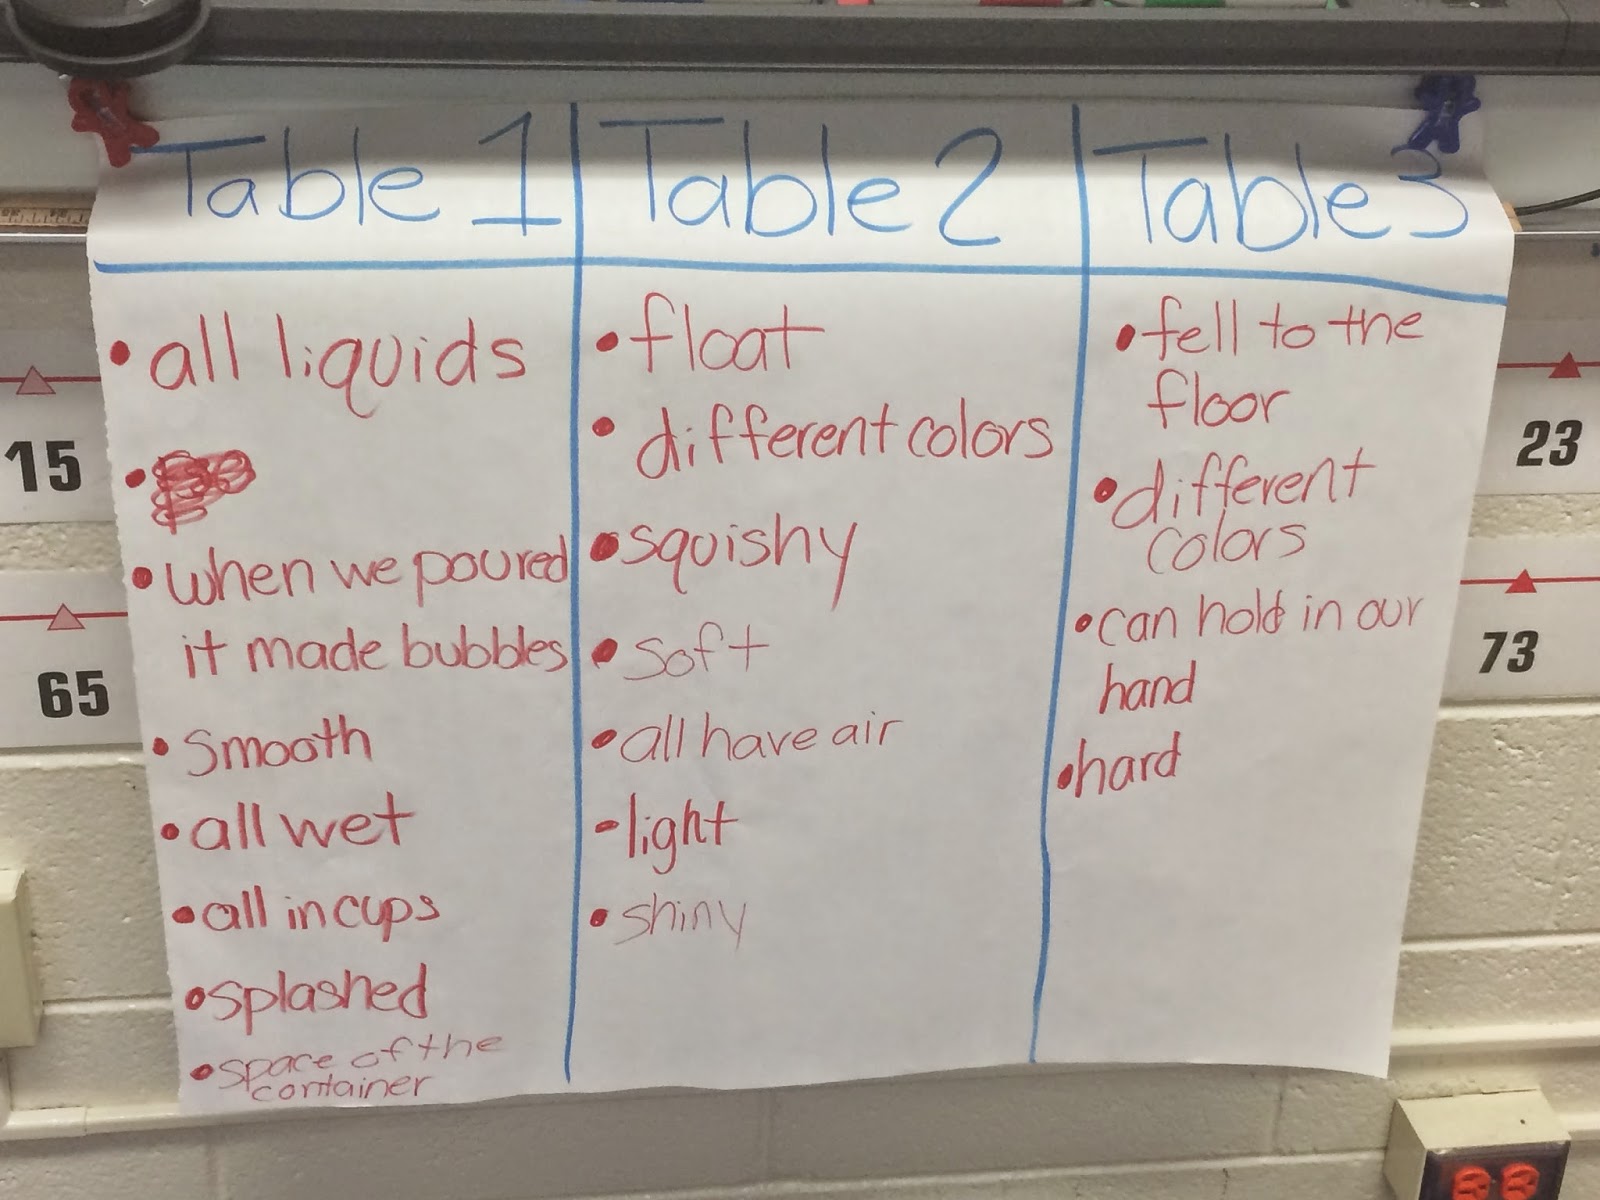 Table 1
• all liquids
•
• when we poured
it made bubbles
• smooth
• all wet
• all in cups
• splashed
• space of the
container
Table 2
• float
• different colors
• squishy
• soft
• all have air
- light
• shiny
Table 3
• fell to the
floor
• different
colors
• can hold in our
hand
• hard
15
65
23
73